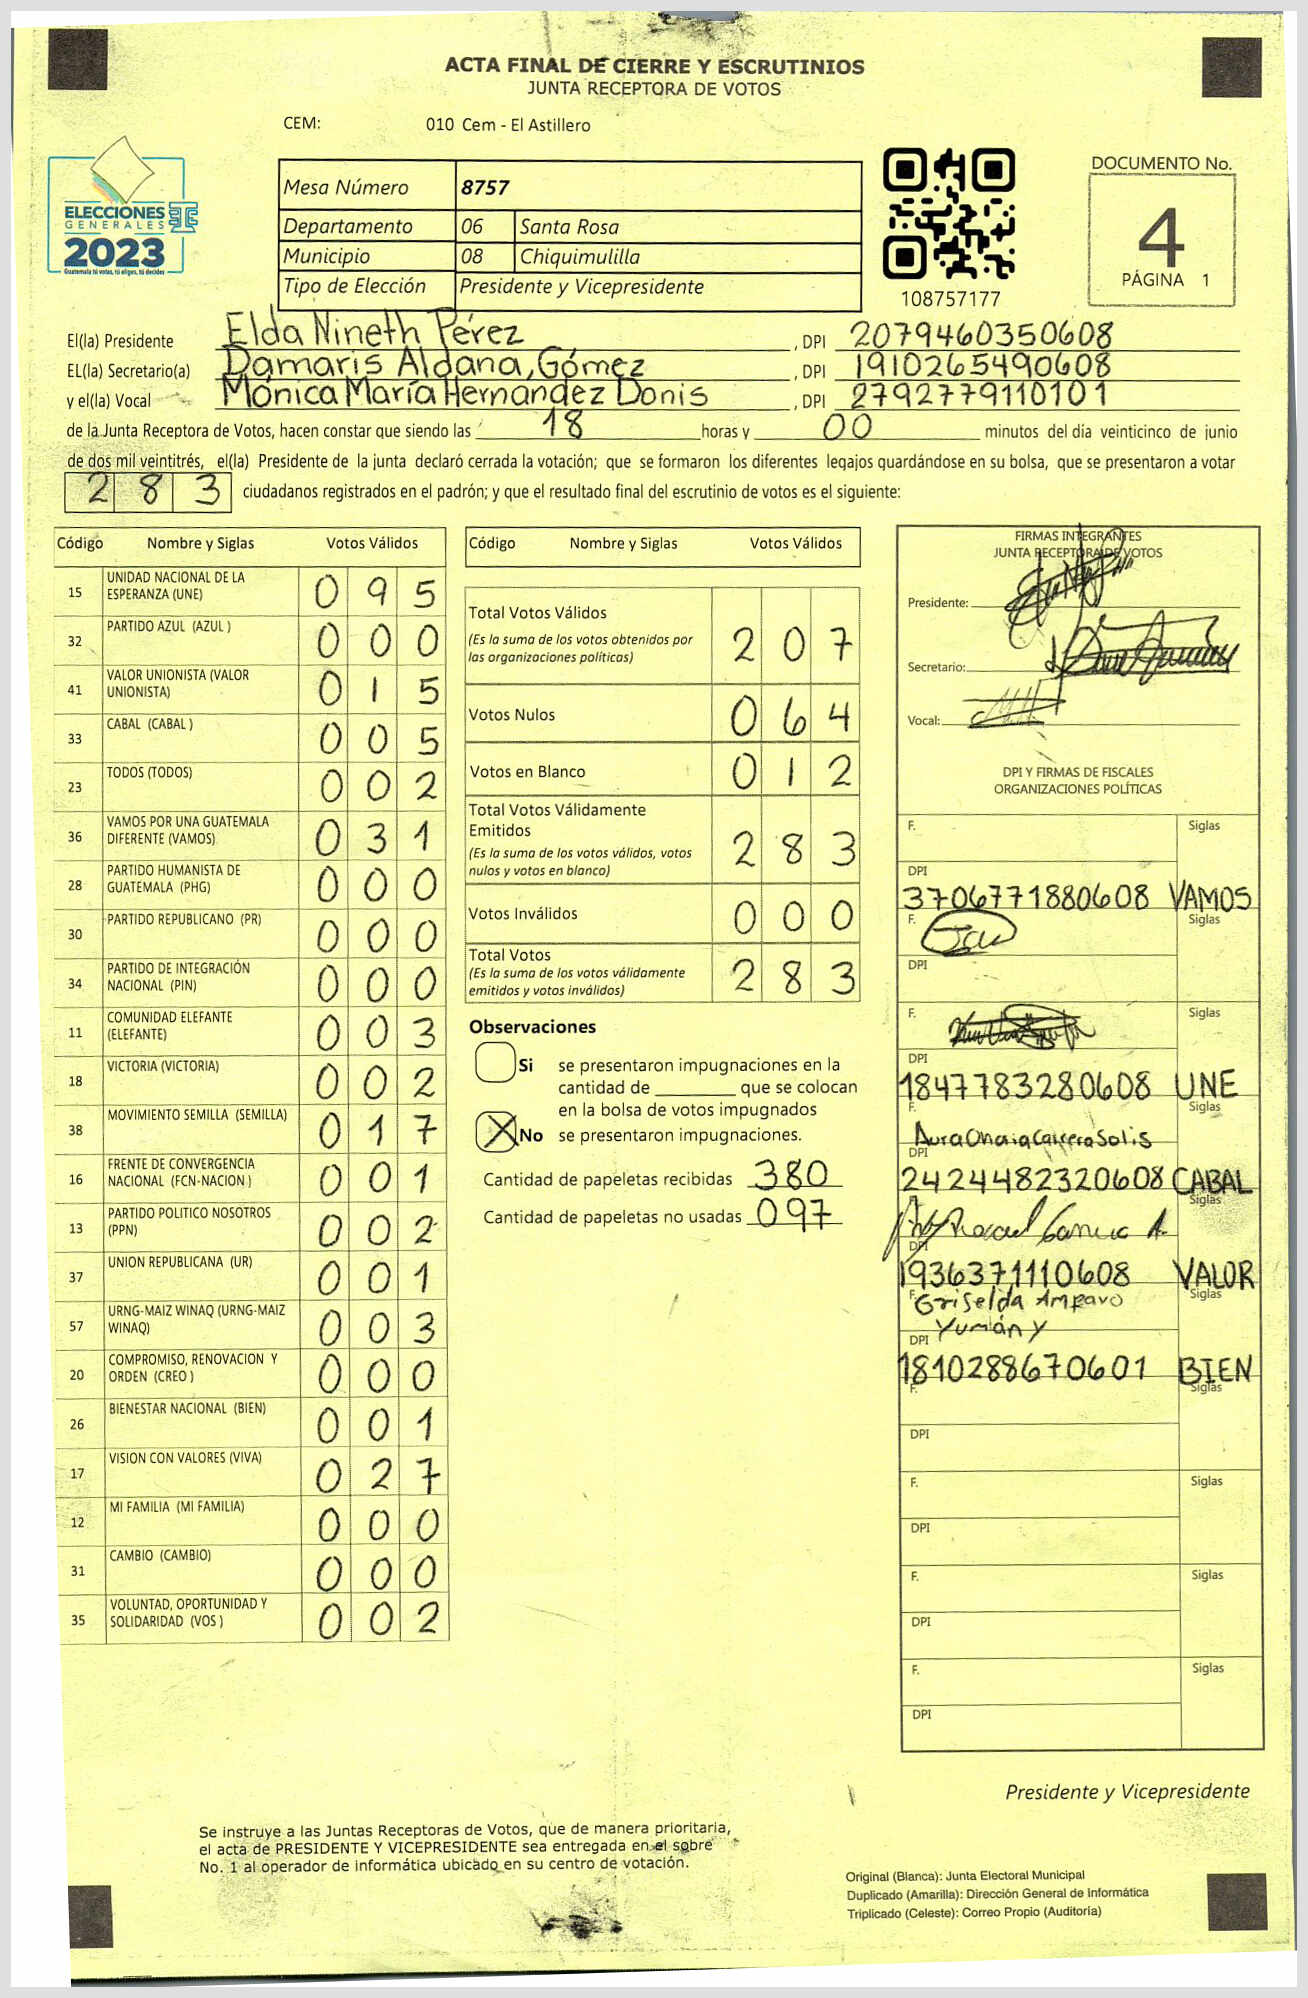 ACTA FINAL DE CIERRE Y ESCRUTINIOS
JUNTA RECEPTORA DE VOTOS
CEM: 010 Cem - El Astillero
ELECCIONES
GENERALES
2023
Guatemala tú votas, tú eliges, tú decides
Mesa Número 8757
Departamento 06 Santa Rosa
Municipio 08 Chiquimulilla
Tipo de Elección Presidente y Vicepresidente
108757177
DOCUMENTO No.
4
PÁGINA 1
El(la) Presidente Elda Nineth Pérez, DPI 2079460350608
EL(la) Secretario(a) Damaris Aldana, Gómez, DPI 1910265490608
y el(la) Vocal Mónica María Hernandez Donis, DPI 2792779110101
de la Junta Receptora de Votos, hacen constar que siendo las 18 horas y 00 minutos del día veinticinco de junio
de dos mil veintitrés, el(la) Presidente de la junta declaró cerrada la votación; que se formaron los diferentes legajos guardándose en su bolsa, que se presentaron a votar
283 ciudadanos registrados en el padrón; y que el resultado final del escrutinio de votos es el siguiente:
Código Nombre y Siglas Votos Válidos
15 UNIDAD NACIONAL DE LA
ESPERANZA (UNE) 095
32 PARTIDO AZUL (AZUL ) 000
41 VALOR UNIONISTA (VALOR
UNIONISTA) 015
33 CABAL (CABAL ) 005
23 TODOS (TODOS) 002
36 VAMOS POR UNA GUATEMALA
DIFERENTE (VAMOS) 031
28 PARTIDO HUMANISTA DE
GUATEMALA (PHG) 000
30 PARTIDO REPUBLICANO (PR) 000
34 PARTIDO DE INTEGRACIÓN
NACIONAL (PIN) 000
11 COMUNIDAD ELEFANTE
(ELEFANTE) 003
18 VICTORIA (VICTORIA) 002
38 MOVIMIENTO SEMILLA (SEMILLA) 017
16 FRENTE DE CONVERGENCIA
NACIONAL (FCN-NACION ) 001
13 PARTIDO POLITICO NOSOTROS
(PPN) 002
37 UNION REPUBLICANA (UR) 001
57 URNG-MAIZ WINAQ (URNG-MAIZ
WINAQ) 003
20 COMPROMISO, RENOVACION Y
ORDEN (CREO ) 000
26 BIENESTAR NACIONAL (BIEN) 001
17 VISION CON VALORES (VIVA) 027
12 MI FAMILIA (MI FAMILIA) 000
31 CAMBIO (CAMBIO) 000
35 VOLUNTAD, OPORTUNIDAD Y
SOLIDARIDAD (VOS ) 002
Código Nombre y Siglas Votos Válidos
Total Votos Válidos
(Es la suma de los votos obtenidos por
las organizaciones políticas) 207
Votos Nulos 064
Votos en Blanco 012
Total Votos Válidamente
Emitidos
(Es la suma de los votos válidos, votos
nulos y votos en blanco) 283
Votos Inválidos 000
Total Votos
(Es la suma de los votos válidamente
emitidos y votos inválidos) 283
Observaciones
Si se presentaron impugnaciones en la
cantidad de ________ que se colocan
en la bolsa de votos impugnados
X No se presentaron impugnaciones.
Cantidad de papeletas recibidas 380
Cantidad de papeletas no usadas 097
FIRMAS INTEGRANTES
JUNTA RECEPTORA DE VOTOS
Presidente:
Secretario:
Vocal:
DPI Y FIRMAS DE FISCALES
ORGANIZACIONES POLÍTICAS
F. Siglas
DPI
3706771880608 VAMOS
F. Siglas
DPI
F. Siglas
DPI
1847783280608 UNE
F. Siglas
DPI
2424482320608 CABAL
Siglas
DPI
1936371110608 VALOR
F. Griselda Amparo Siglas
DPI Yumán y
1810288670601 BIEN
F. Siglas
DPI
F. Siglas
DPI
F. Siglas
DPI
F. Siglas
DPI
Presidente y Vicepresidente
Se instruye a las Juntas Receptoras de Votos, que de manera prioritaria,
el acta de PRESIDENTE Y VICEPRESIDENTE sea entregada en el sobre
No. 1 al operador de informática ubicado en su centro de votación.
Original (Blanca): Junta Electoral Municipal
Duplicado (Amarilla): Dirección General de Informática
Triplicado (Celeste): Correo Propio (Auditoría)